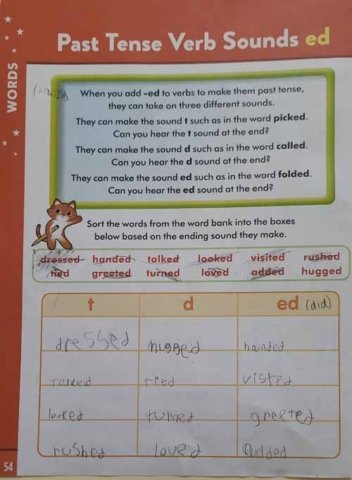 Past Tense Verb Sounds ed
WORDS
When you add -ed to verbs to make them past tense,
they can take on three different sounds.
They can make the sound t such as in the word picked.
Can you hear the t sound at the end?
They can make the sound d such as in the word called.
Can you hear the d sound at the end?
They can make the sound ed such as in the word folded.
Can you hear the ed sound at the end?
Sort the words from the word bank into the boxes
below based on the ending sound they make.
dressed handed talked looked visited rushed
tied greeted turned loved added hugged
t d ed (did)
dressed hugged handed
talked tied visted
looked turned greeted
rushed loved added
54